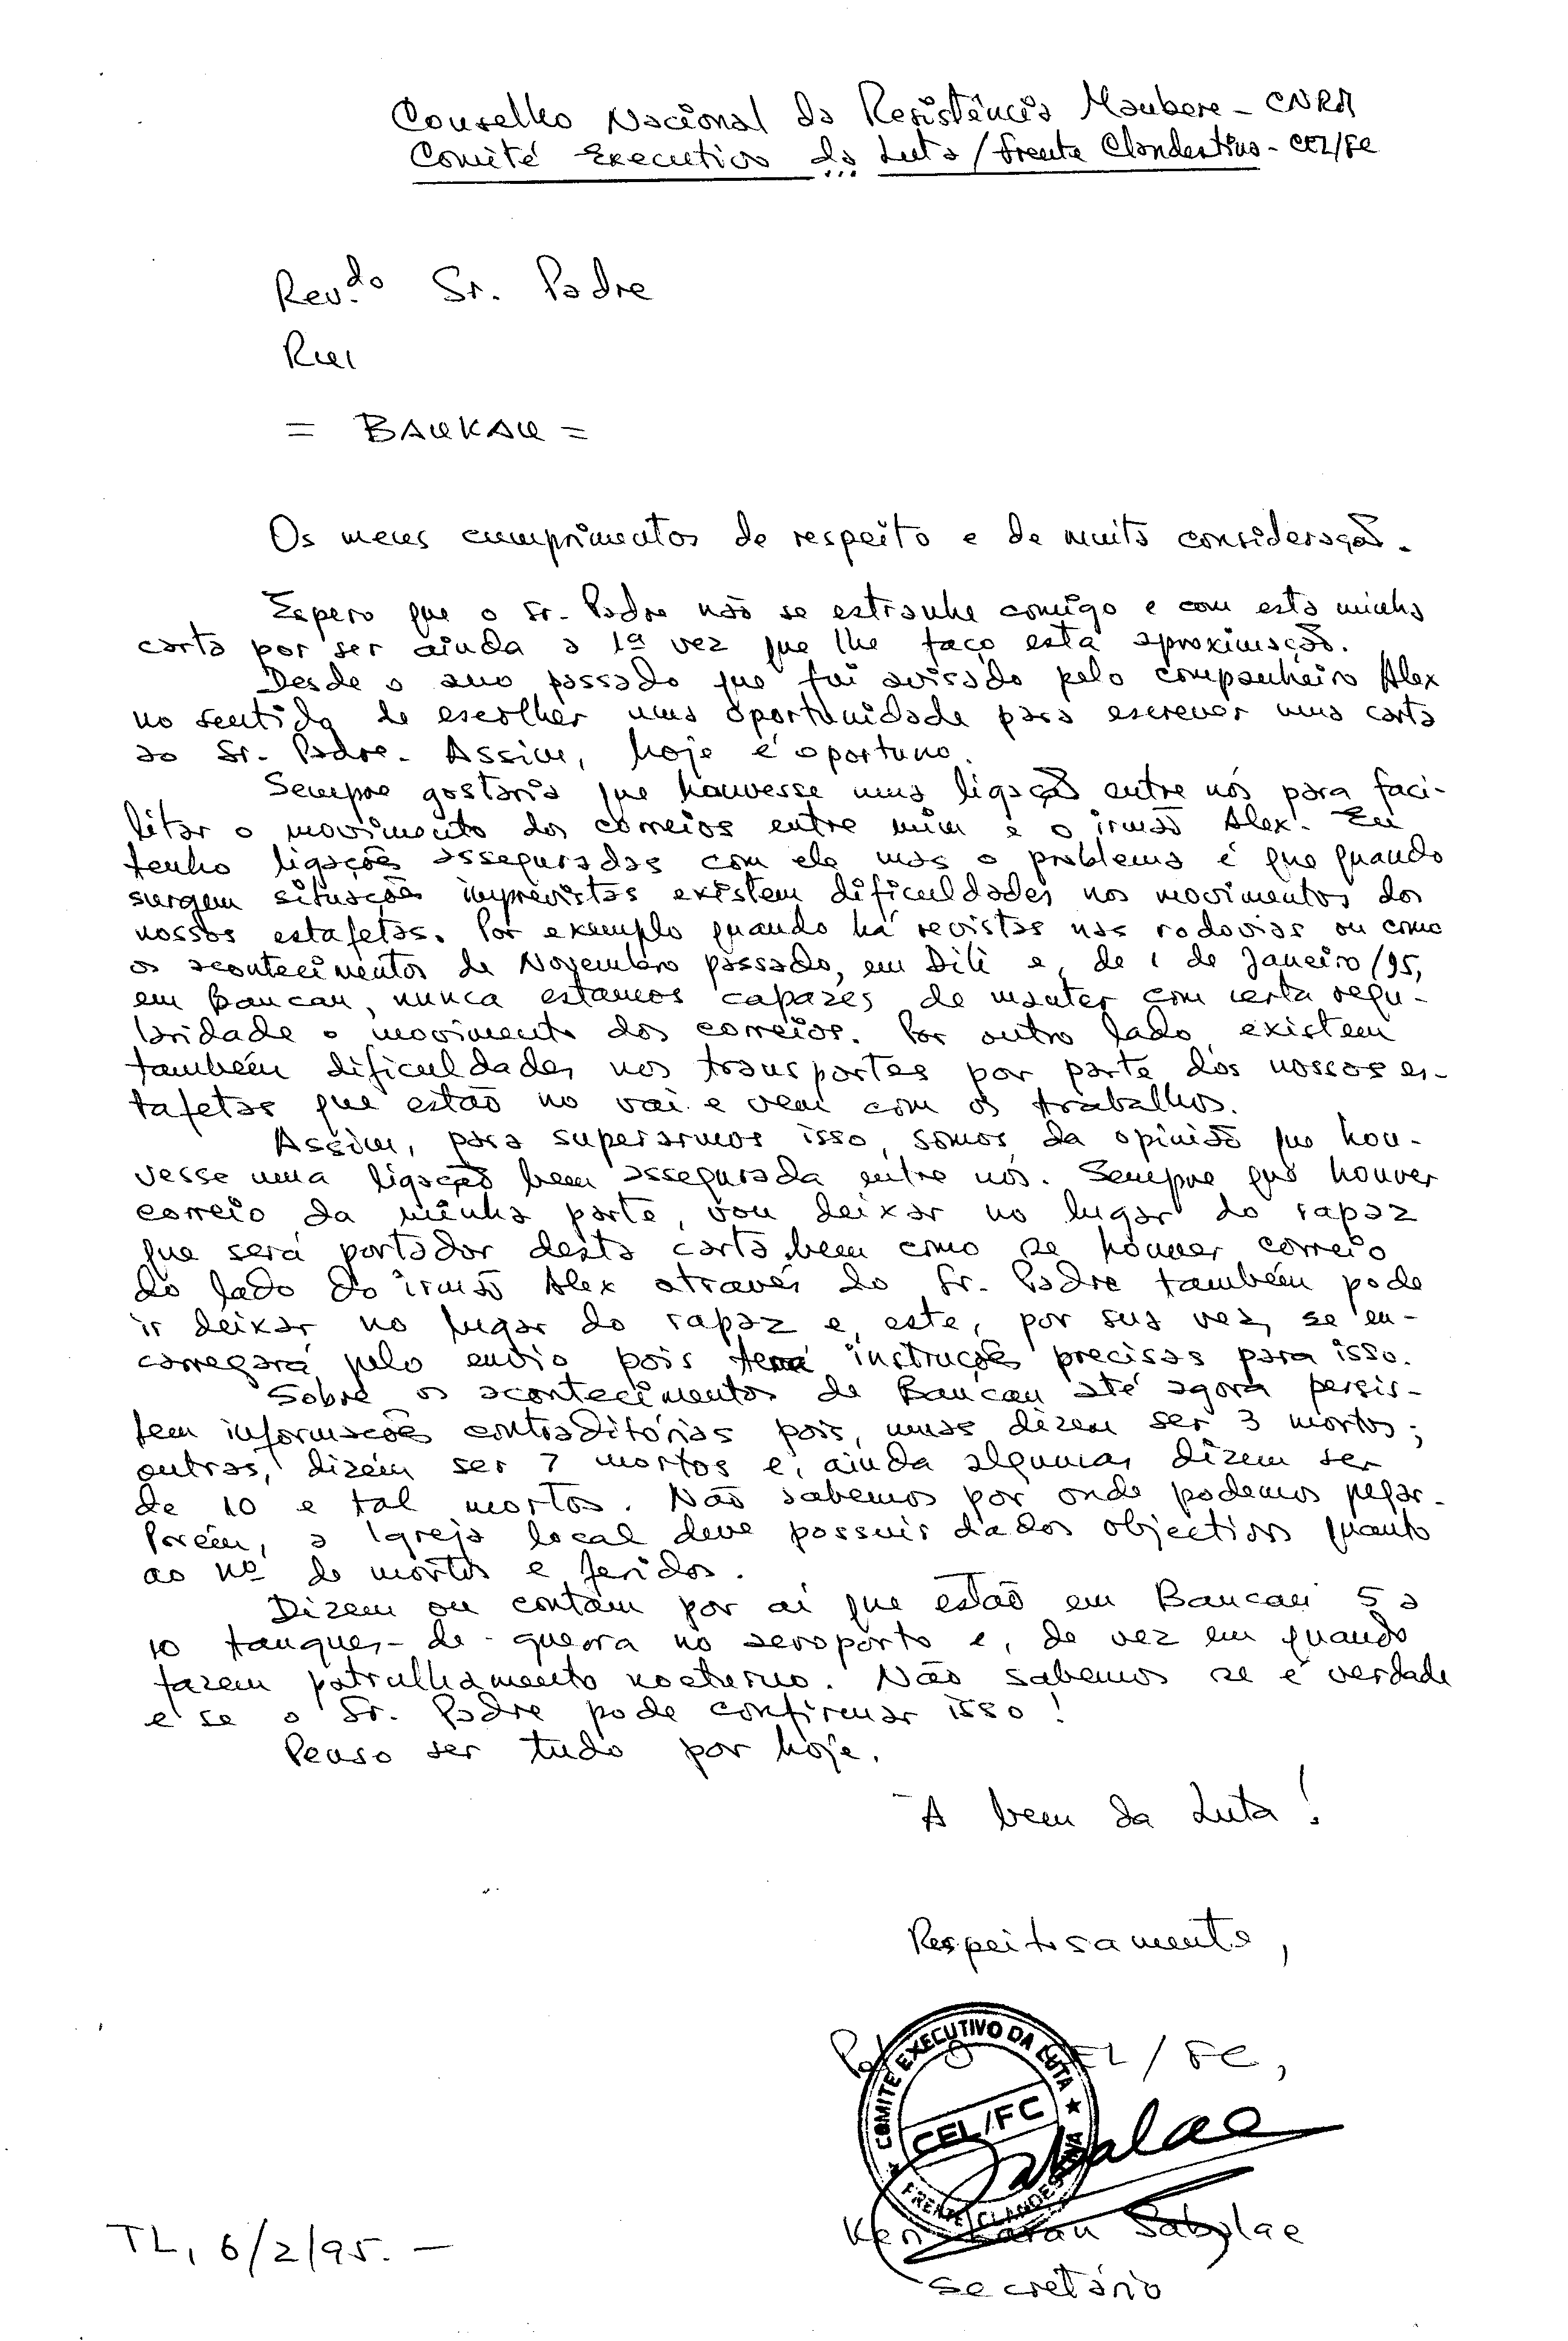 Conselho Nacional da Resistência Maubere - CNRM
Comité Executivo da Luta / Frente Clandestina - CEL/FC
Rev.do Sr. Padre
Rui
= BAUKAU =
Os meus cumprimentos de respeito e de muita consideração.
Espero que o Sr. Padre não se estranhe comigo e com esta minha
carta por ser ainda a 1ª vez que lhe faço esta aproximação.
Desde o ano passado que fui avisado pelo companheiro Alex
no sentido de escolher uma oportunidade para escrever uma carta
ao Sr. Padre. Assim, hoje é oportuno.
Sempre gostaria que houvesse uma ligação entre nós para faci-
litar o movimento dos correios entre mim e o irmão Alex. Eu
tenho ligações asseguradas com ele mas o problema é que quando
surgem situações imprevistas existem dificuldades nos movimentos dos
nossos estafetas. Por exemplo quando há revistas nas rodovias ou como
os acontecimentos de Novembro passado, em Dili e, de 1 de Janeiro/95,
em Baucau, nunca estamos capazes de manter com certa regu-
laridade o movimento dos correios. Por outro lado, existem
também dificuldades nos transportes por parte dos nossos es-
tafetas que estão no vai e vem com os trabalhos.
Assim, para superarmos isso, somos da opinião que hou-
vesse uma ligação bem assegurada entre nós. Sempre que houver
correio da minha parte, vou deixar no lugar do rapaz
que será portador desta carta bem como se houver correio
do lado do irmão Alex através do Sr. Padre também pode
ir deixar no lugar do rapaz e, este, por sua vez, se en-
carregará pelo envio pois terá instruções precisas para isso.
Sobre os acontecimentos de Baucau até agora persis-
tem informações contraditórias pois, umas dizem ser 3 mortos;
outras, dizem ser 7 mortos e, ainda algumas dizem ser
de 10 e tal mortos. Não sabemos por onde podemos pegar.
Porém, a Igreja local deve possuir dados objectivos quanto
ao nº de mortos e feridos.
Dizem ou contam por aí que estão em Baucau 5 a
10 tanques-de-guerra no aeroporto e, de vez em quando
fazem patrulhamento nocturno. Não sabemos se é verdade
e se o Sr. Padre pode confirmar isso!
Penso ser tudo por hoje.
A bem da Luta!
Respeitosamente,
O CEL/FC,
COMITÉ EXECUTIVO DA LUTA
CEL/FC
FRENTE CLANDESTINA
Sabalae
Sabalae
secretário
TL, 6/2/95. -